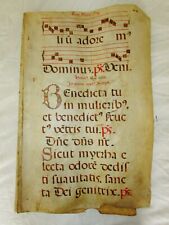 liū adore m⁹
Dominuz, ps. Veni
Benedicta tu
in mulierib⁹.
et benedict⁹ fruc⁹
vētris tui. ps.
Dn̄e dn̄s nr̄.
Sicut myrrha e
lecta odorē dedis
ti suauitatis, san
cta Dei genitrix. ps.